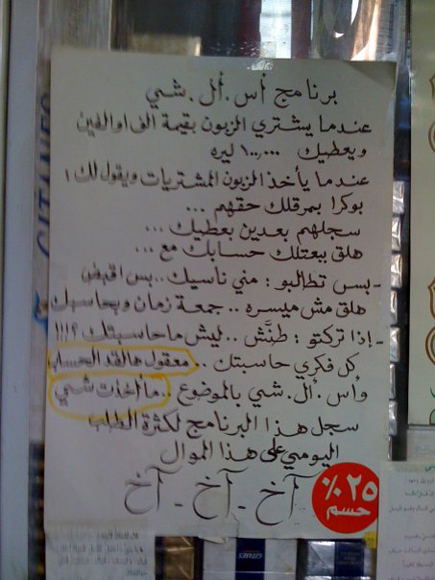 برنامج أس . أل . شي
عندما يشتري الزبون بقيمة الف او الفين
ويعطيك ١٠٠٠,٠ ليره
عندما يأخذ الزبون المشتريات ويقول لك :
بوكرا بمرقلك حقهم ...
سجلهم بعدين بعطيك ...
هلق ببعتلك حسابك مع ...
- بس تطالبو : مني ناسيك .. بس اقبض
هلق مش ميسره .. جمعة زمان وبحاسبك
- إذا تركتو : طنَّش .. ليش ما حاسبتك ؟!!!
كل فكري حاسبتك .. معقول هالقد الحساب
وأس . أل . شي بالموضوع .. ما أخذت شي
سجل هذا البرنامج لكثرة الطلب
اليومي على هذا الموال
آخ - آخ - آخ
٢٥%
حسم
GITANES